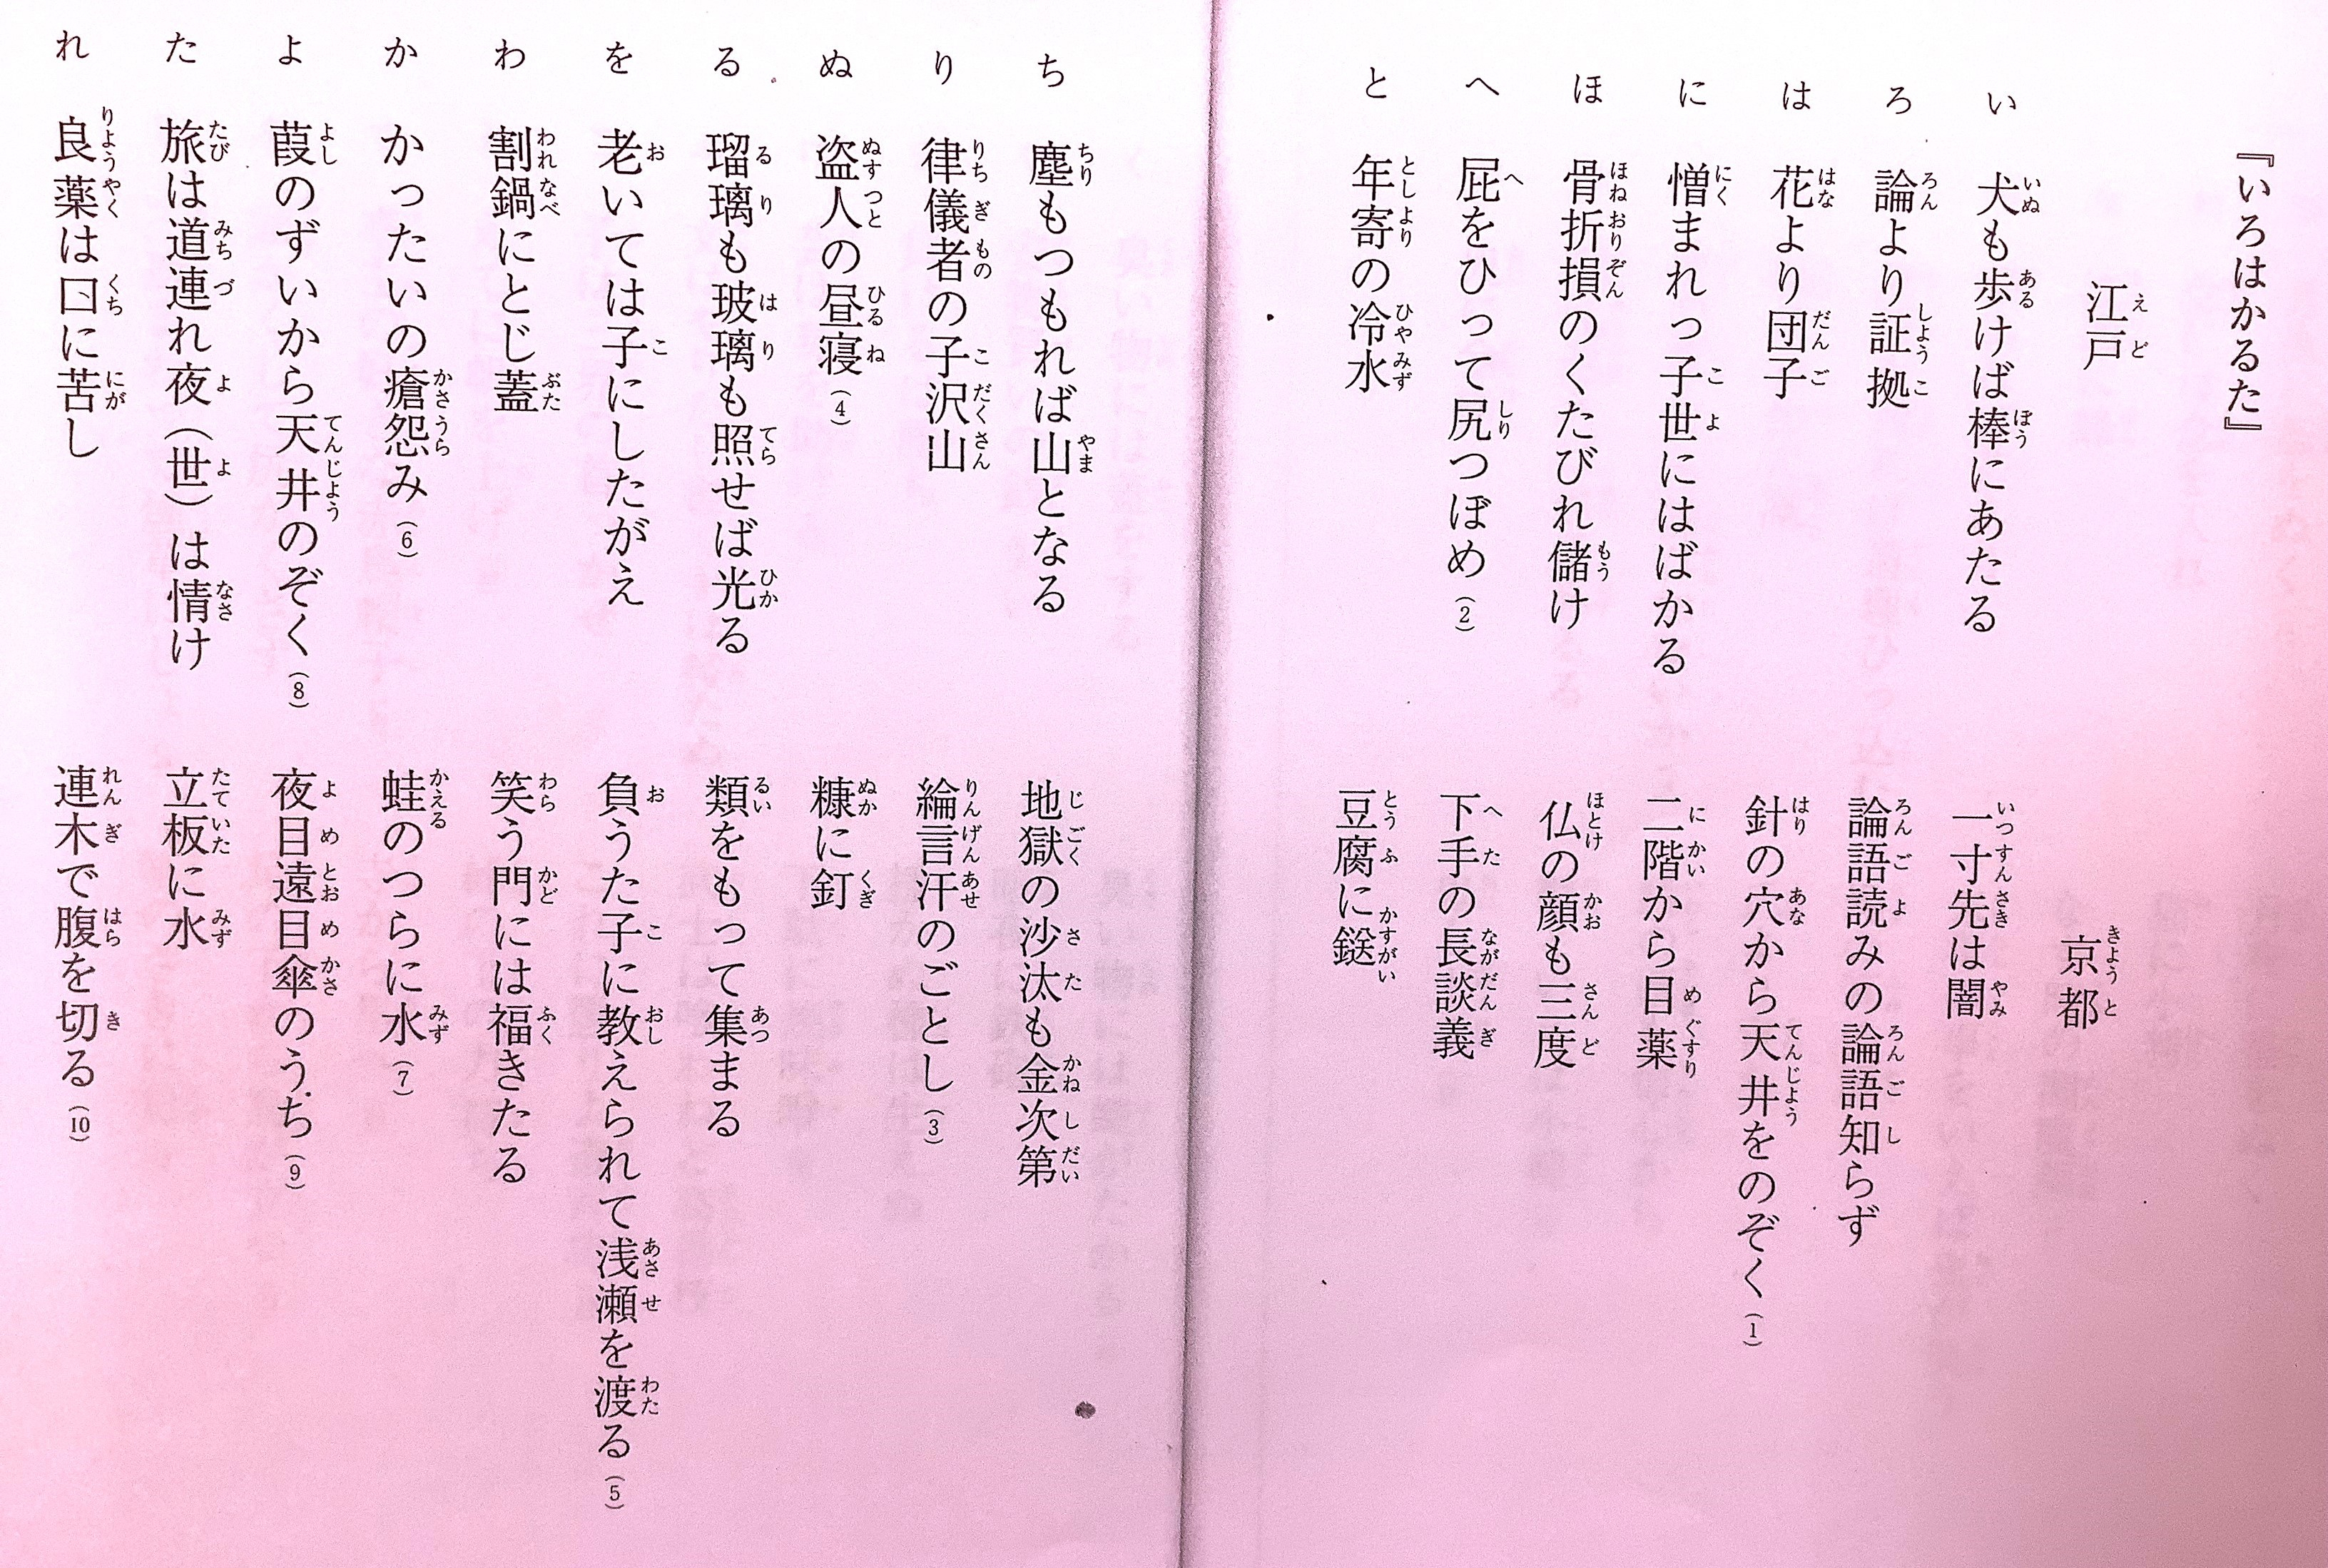 『いろはかるた』
江戸
京都
い 犬も歩けば棒にあたる 一寸先は闇
ろ 論より証拠 論語読みの論語知らず
は 花より団子 針の穴から天井をのぞく(1)
に 憎まれっ子世にはばかる 二階から目薬
ほ 骨折損のくたびれ儲け 仏の顔も三度
へ 屁をひって尻つぼめ(2) 下手の長談義
と 年寄の冷水 豆腐に鎹
ち 塵もつもれば山となる 地獄の沙汰も金次第
り 律儀者の子沢山 綸言汗のごとし(3)
ぬ 盗人の昼寝(4) 糠に釘
る 瑠璃も玻璃も照せば光る 類をもって集まる
を 老いては子にしたがえ 負うた子に教えられて浅瀬を渡る(5)
わ 割鍋にとじ蓋 笑う門には福きたる
か かったいの瘡怨み(6) 蛙のつらに水(7)
よ 葭のずいから天井のぞく(8) 夜目遠目傘のうち(9)
た 旅は道連れ夜(世)は情け 立板に水
れ 良薬は口に苦し 連木で腹を切る(10)